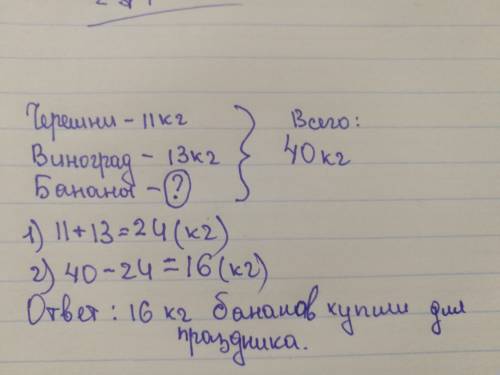 Черешни - 11кг
Виноград - 13кг
Бананы - ?
Всего:
40кг
1) 11+13=24(кг)
2) 40-24=16(кг)
Ответ: 16 кг бананов купили для
праздника.